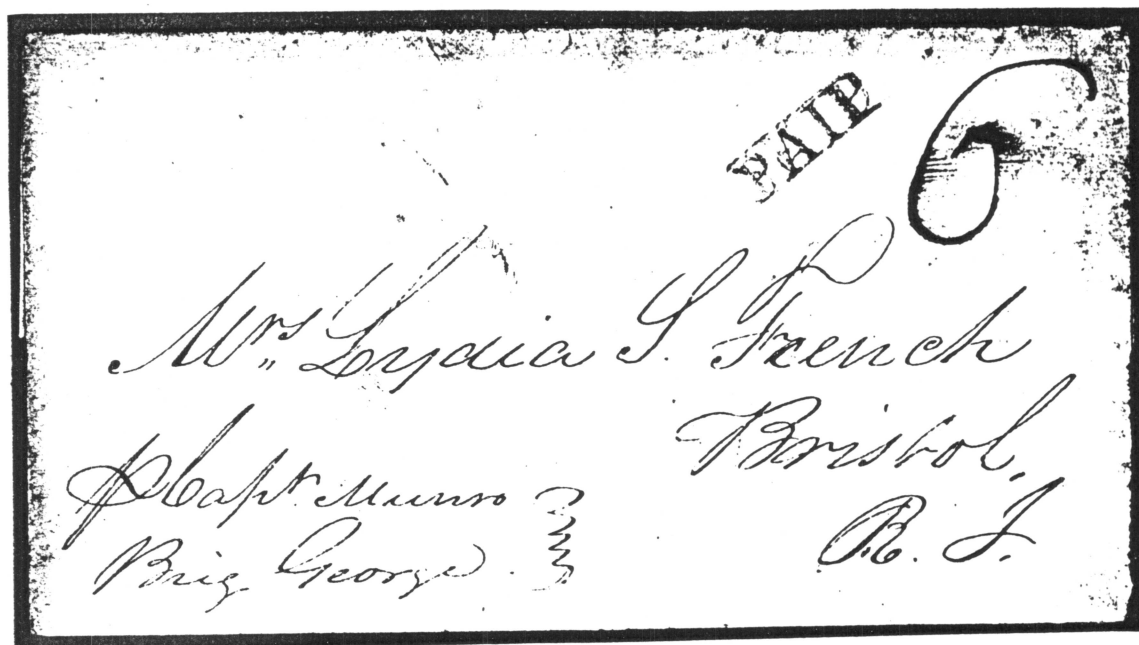 PAID 6
Mrs,, Lydia S. French
Bristol,
R. I.
p Capt. Munro
Brig George.